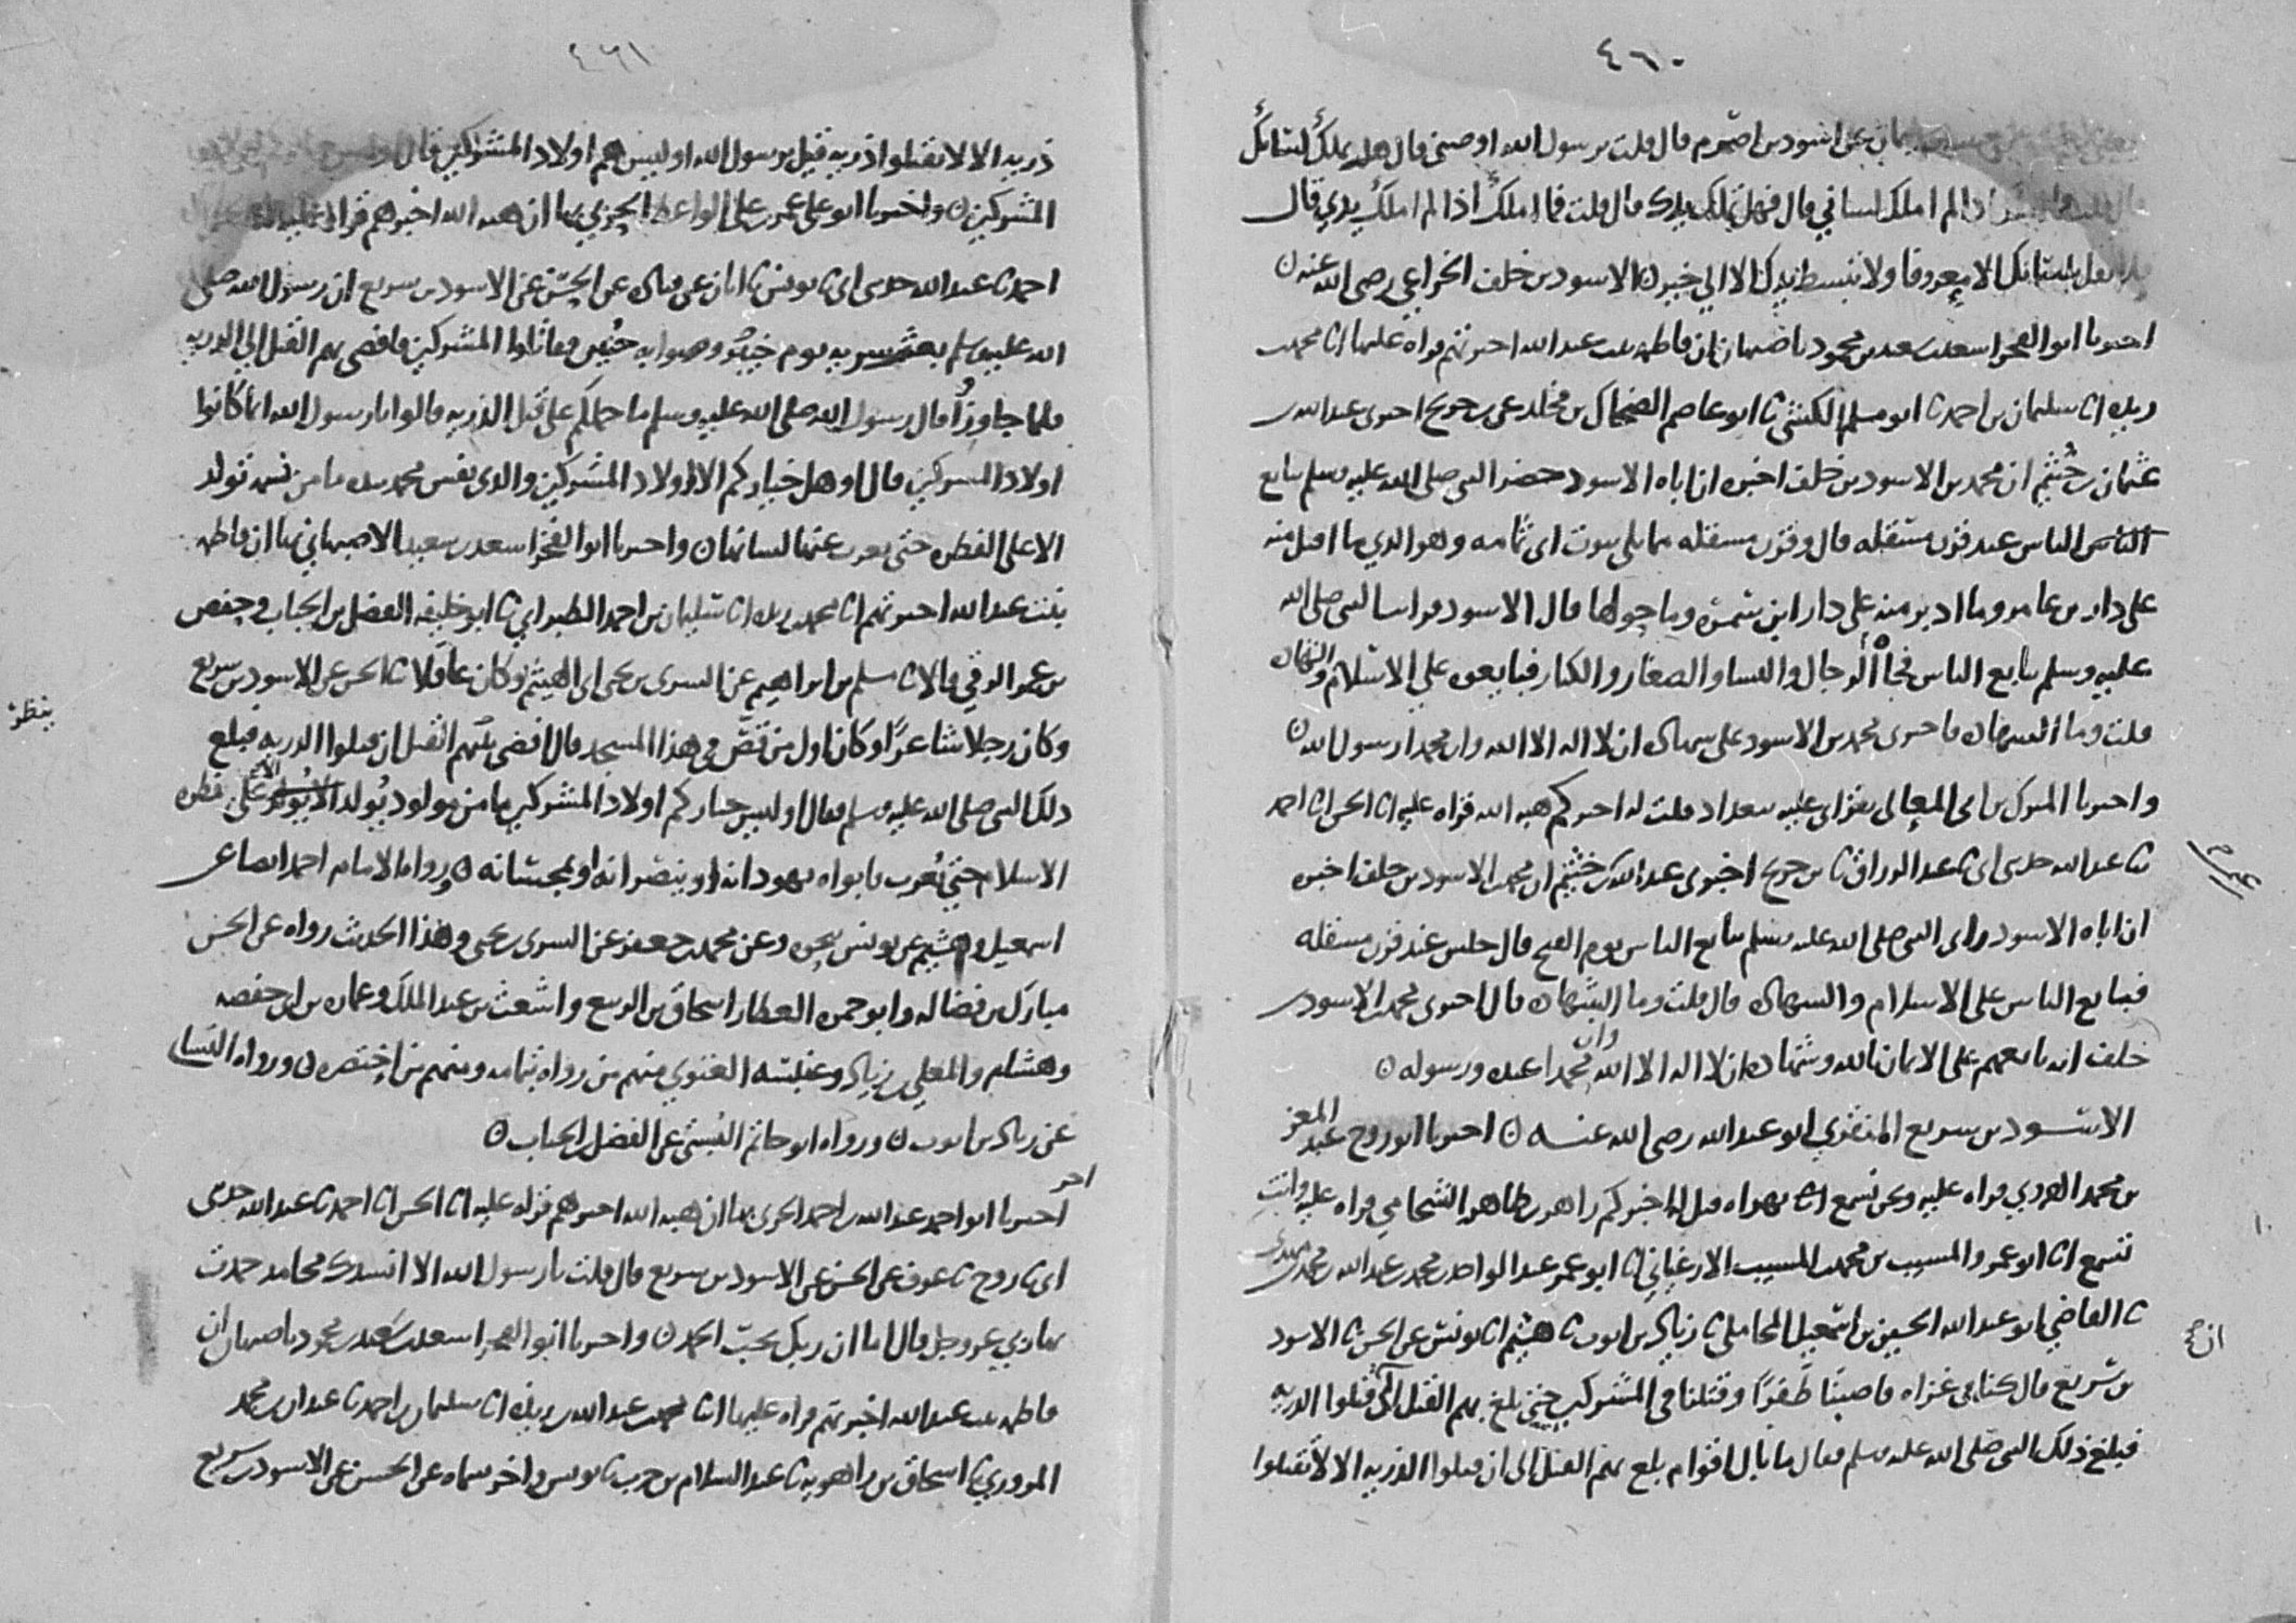 ٤٦٠
عن اسود بن اصرم قال قلت يرسول الله اوصني قال هل تملك لسانك
اذا لم املك لساني قال فهل تملك يدك قال قلت فما املك اذا لم املك يدي قال
بلسانك الا معروفا ولا تبسط يدك الا الي خير ن الاسود بن خلف الخزاعي رضي الله عنه ن
اخبرنا ابو الفخر اسعد بن سعيد بن محمود باصبهان ان فاطمة بنت عبد الله اخبرتهم قراه عليها انا محمد بن
ريذه انا سليمان بن احمد نا ابو مسلم الكشي نا ابو عاصم الضحاك بن مخلد عن بن جريج اخبرني عبد الله بن
عثمان بن خثيم ان محمد بن الاسود بن خلف اخبره ان اباه الاسود حضر النبي صلى الله عليه وسلم يبايع
الناس الناس عند قرن مسقله قال وقرن مسقله مما يلي بيوت ابي ثمامه وهو الذي ما اقبل منه
على دار بن عامر وما ادبر منه علي دار ابن سمره وما حولها قال الاسود فرايت النبي صلى الله
عليه وسلم يبايع الناس فجاه الرجال والنسا والصغار والكبار فبايعوه علي الاسلام والشهاده
قلت وما الشهاده فاخبرني محمد بن الاسود على شهاده ان لا اله الا الله وان محمدا رسول الله ن
واخبرنا المبرك بن ابي المعالي بقراتي عليه ببغداد قلت له اخبركم هبه الله قراه عليه انا الحسن انا احمد
نا عبد الله حدثني ابي نا عبد الرزاق نا بن جريج اخبرني عبد الله بن خثيم ان محمد بن الاسود بن خلف اخبره
ان اباه الاسود راى النبي صلى الله عليه وسلم يبايع الناس يوم الفتح قال جلس عند قرن مسقله
فبايع الناس على الاسلام والشهاده قال قلت وما الشهاده قال اخبرني محمد بن الاسود بن
خلف انه بايعهم على الايمان بالله وشهاده ان لا اله الا الله وان محمدا عبده ورسوله ن
الاسود بن سريع المنقري ابو عبد الله رضى الله عنه ن اخبرنا ابو روح عبد المعز
بن محمد الهروي قراه عليه ونحن نسمع بهراه قيل له اخبركم زاهر بن طاهر الشحامي قراه عليه وانت
تسمع انا ابو عمرو المسيب بن محمد بن المسيب الارغياني انا ابو عمر عبد الواحد بن محمد بن عبد الله بن محمد بن مهدي
نا القاضي ابو عبد الله الحسين بن اسمعيل المحاملي نا زياد بن ايوب نا هشيم انا يونس عن الحسن نا الاسود
بن سريع قال كنا في غزاه فاصبنا ظفرا وقتلنا في المشركين حتى بلغ بهم القتل الى قتلوا الذريه
فبلغ ذلك النبي صلى الله عليه وسلم فقال ما بال اقوام بلغ بهم القتل الى ان قتلوا الذريه الا لا تقتلوا
٤٦١
ذريه الا لا تقتلوا ذريه قيل يرسول الله اوليس هم اولاد المشركين قال
المشركين ن واخبرنا ابو علي عمر بن علي الواعظ الحربي بها ان هبه الله اخبرهم قراه عليه
احمد نا عبد الله حدثني ابي نا يونس نا ابان عن قتاده عن الحسن عن الاسود بن سريع ان رسول الله صلى
الله عليه وسلم بعث سريه يوم خيبر وصوابه حنين فقاتلوا المشركين فافضى بهم القتل الي الذريه
فلما جاوزا قال رسول الله صلى الله عليه وسلم ما حملكم على قتل الذريه قالوا يارسول الله انما كانوا
اولاد المشركين قال اوهل خياركم الا اولاد المشركين والذي نفس محمد بيده ما من نسمه تولد
الا على الفطره حتى يعرب عنها لسانها ن واخبرنا ابو الفخر اسعد بن سعيد الاصبهاني بها ان فاطمه
بنت عبد الله اخبرتهم انا محمد بن ريذه انا سليمان بن احمد الطبراني نا ابو خليفه الفضل بن الحباب وحفص
بن عمر الرقي قالا نا مسلم بن ابراهيم عن السرى بن يحيى ابي الهيثم وكان عاقلا نا الحسن عن الاسود بن سريع
وكان رجلا شاعرا وكان اول من قص في هذا المسجد قال افضى بهم القتل ان قتلوا الذريه فبلغ
ذلك النبي صلى الله عليه وسلم فقال اوليس خياركم اولاد المشركين ما من مولود يولد الا على فطره
الاسلام حتى يعرب فابواه يهودانه او ينصرانه او يمجسانه ن ورواه الامام احمد ايضا عن
اسمعيل وهشيم عن يونس بنحوه وعن محمد بن جعفر عن السرى بن يحيى وهذا الحديث رواه عن الحسن
مبارك بن فضاله وابو حمزه العطار اسحاق بن الربيع واشعث بن عبد الملك وعماره بن ابي حفصه
وهشام والمعلى بن زياد وعنبسه الغنوي منهم من رواه بتمامه ومنهم من اختصره ن ورواه النساي
عن زياد بن ايوب ن ورواه ابو حاتم البستي عن الفضل بن الحباب ن
اخبرنا ابو احمد عبد الله بن احمد الحربي بها ان هبه الله اخبرهم قراه عليه انا الحسن انا احمد نا عبد الله حدثني
ابي نا روح نا عوف عن الحسن عن الاسود بن سريع قال قلت يارسول الله الا انشدك محامد حمدت
بها ربي عز وجل قال اما ان ربك يحب الحمد ن واخبرنا ابو الفخر اسعد بن سعيد بن محمود باصبهان ان
فاطمه بنت عبد الله اخبرتهم قراه عليها انا محمد بن عبد الله بن ريذه انا سليمان بن احمد نا عبدان بن محمد
المروزي نا اسحاق بن راهويه نا عبد السلام بن حرب نا يونس واخر سماه عن الحسن عن الاسود بن سريع